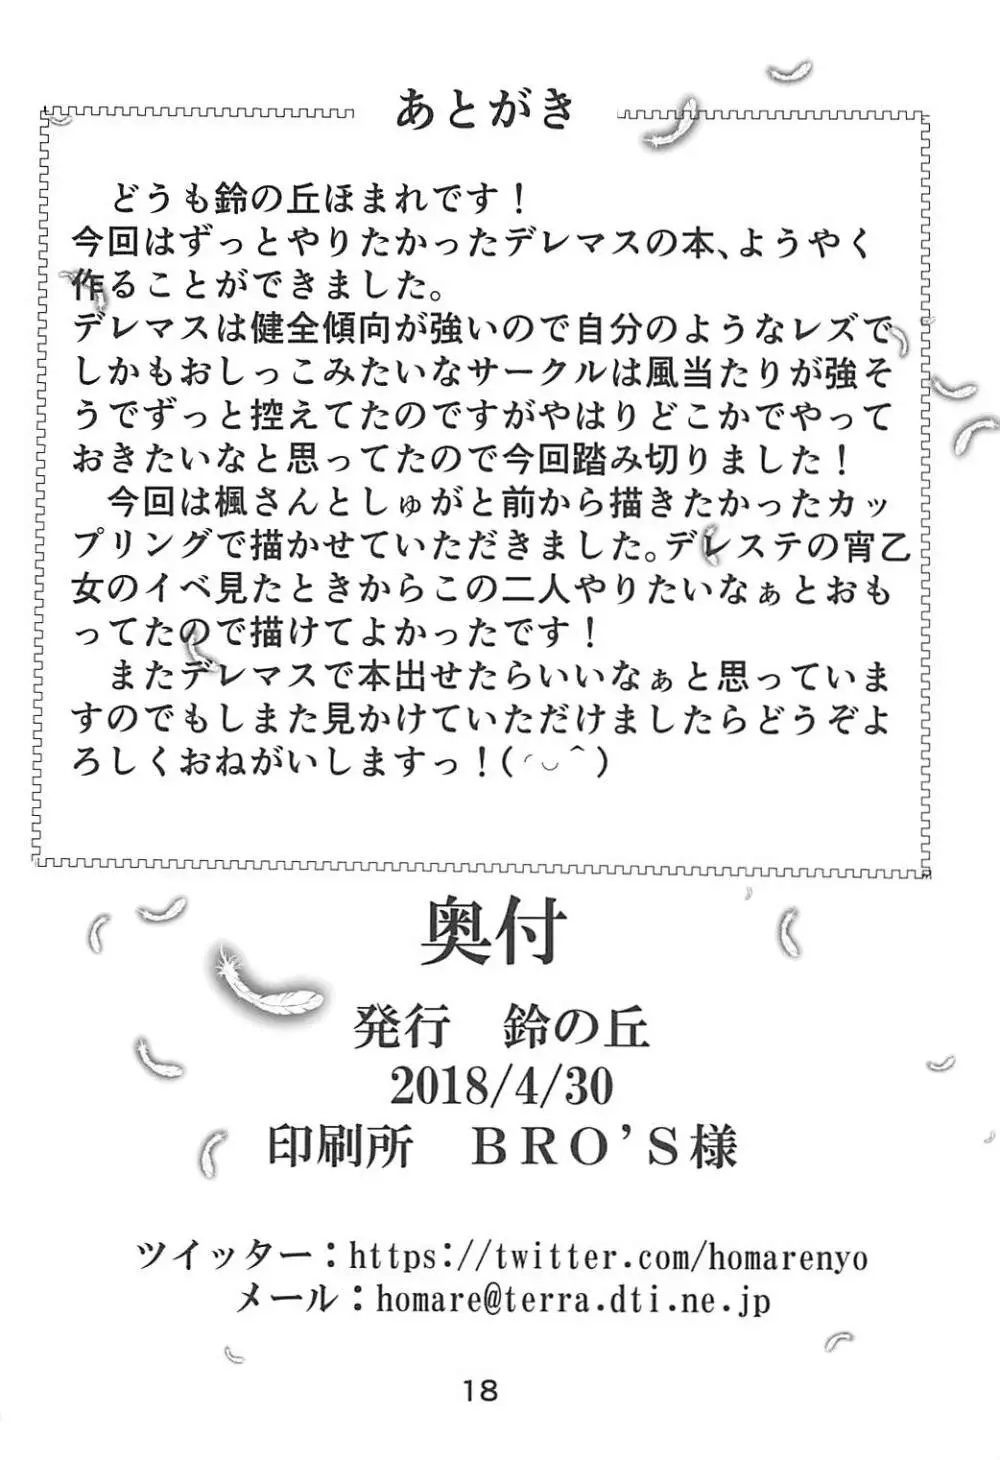 あとがき
　どうも鈴の丘ほまれです！
今回はずっとやりたかったデレマスの本、ようやく
作ることができました。
デレマスは健全傾向が強いので自分のようなレズで
しかもおしっこみたいなサークルは風当たりが強そ
うでずっと控えてたのですがやはりどこかでやって
おきたいなと思ってたので今回踏み切りました！
　今回は楓さんとしゅがと前から描きたかったカッ
プリングで描かせていただきました。デレステの宵乙
女のイベ見たときからこの二人やりたいなぁとおも
ってたので描けてよかったです！
　またデレマスで本出せたらいいなぁと思っていま
すのでもしまた見かけていただけましたらどうぞよ
ろしくおねがいしますっ！(◜◡＾)
奥付
発行　鈴の丘
2018/4/30
印刷所　ＢＲＯ’Ｓ様
ツイッター：https://twitter.com/homarenyo
メール：homare@terra.dti.ne.jp
18